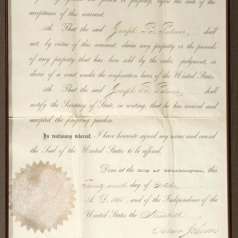 acceptance of this warrant.
4th. That the said Joseph shall
not, by virtue of this warrant, claim any property or the proceeds
of any property that has been sold by the order, judgment, or
decree of a court under the confiscation laws of the United States.
5th. That the said Joseph shall
notify the Secretary of State, in writing, that he has received and
accepted the foregoing pardon.
In testimony whereof, I have hereunto signed my name and caused
the Seal of the United States to be affixed.
Done at the City of Washington, this
day of
A. D. 1865, and of the Independence of the
United States the Ninetieth.
Andrew Johnson